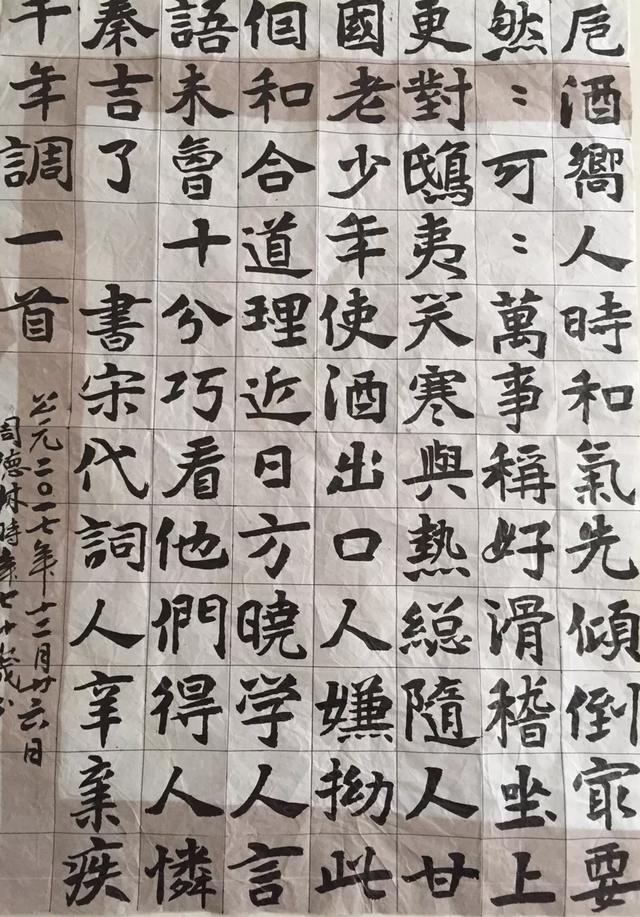 卮酒嚮人時和氣先傾倒冣要
然〻可〻萬事稱好滑稽坐上
更對鴟夷笑寒與熱総隨人甘
國老少年使酒出口人嫌拗此
個和合道理近日方曉学人言
語未曾十分巧看他們得人憐
秦吉了 書宋代詞人辛棄疾
千年調一首
公元二〇一七年十二月廿六日
周德時年七十歲